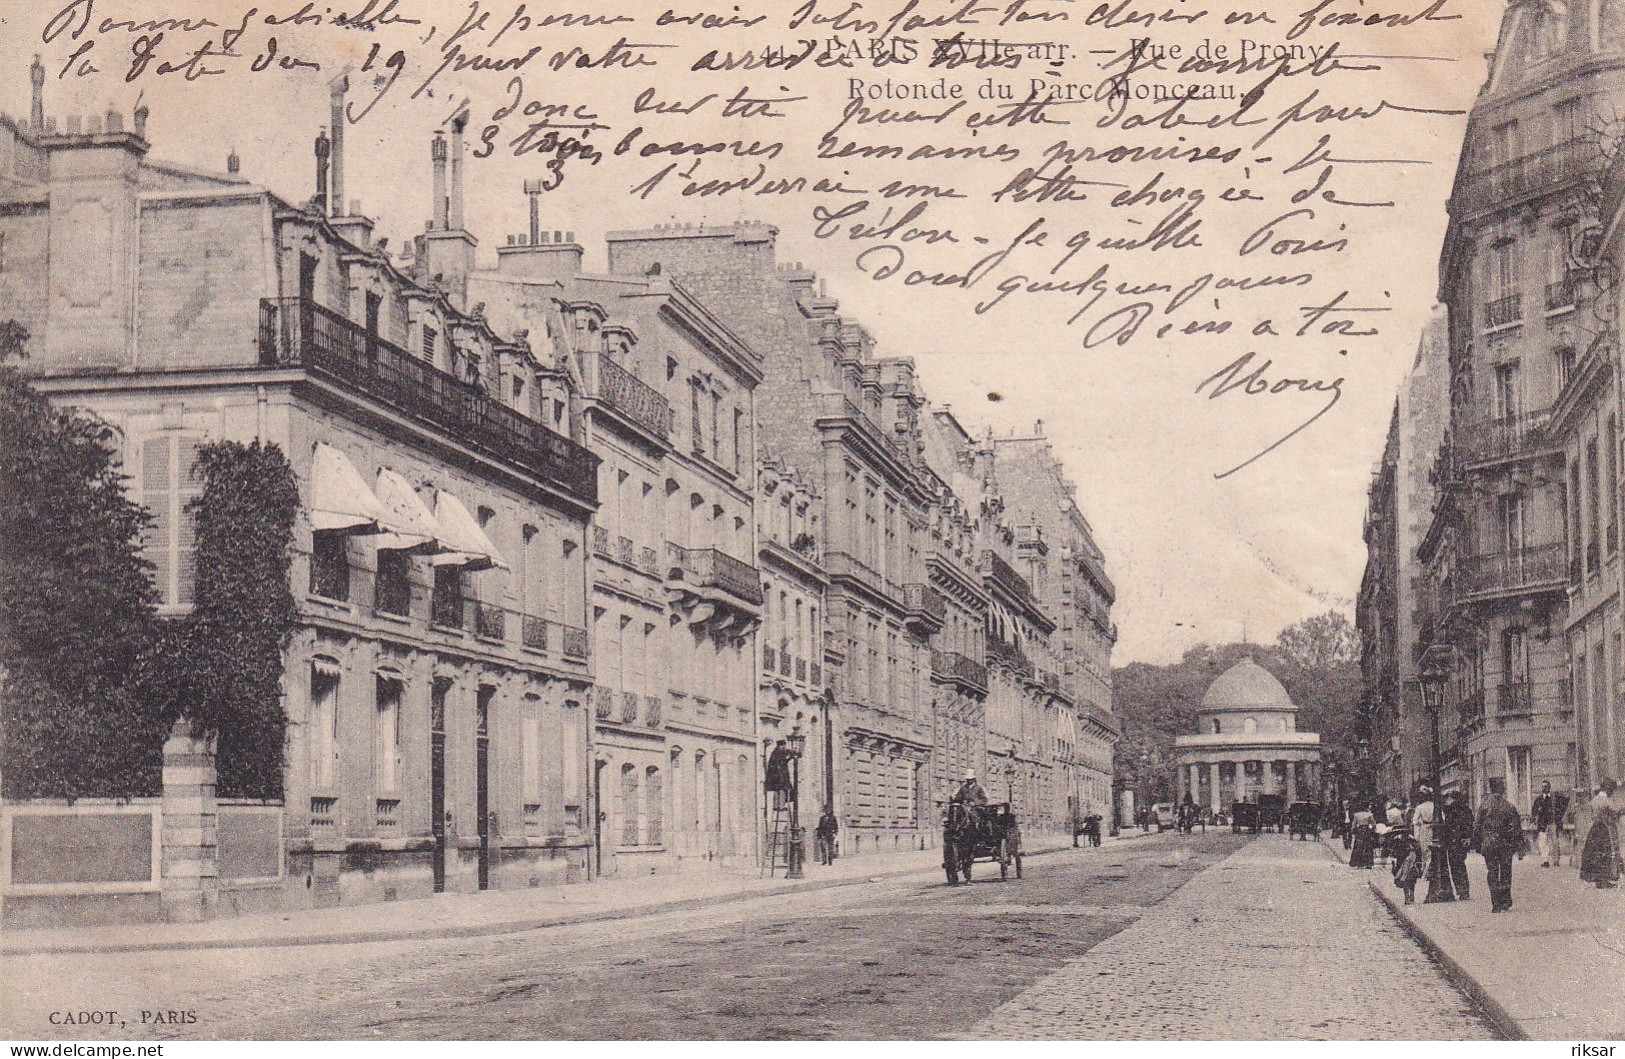 Bonne gabielle, je pense avoir satisfait ton desir en fixant
la Date du 19 pour votre arrivée à tous - Je compte
44. - PARIS XVIIe arr. - Rue de Prony
Rotonde du Parc Monceau.
donc sur toi pour cette date et pour
3 bonnes semaines promises - Je
3
t'enverrai une lettre chargée de
Je quitte Paris
Dans quelques jours
Bien a toi
CADOT, PARIS